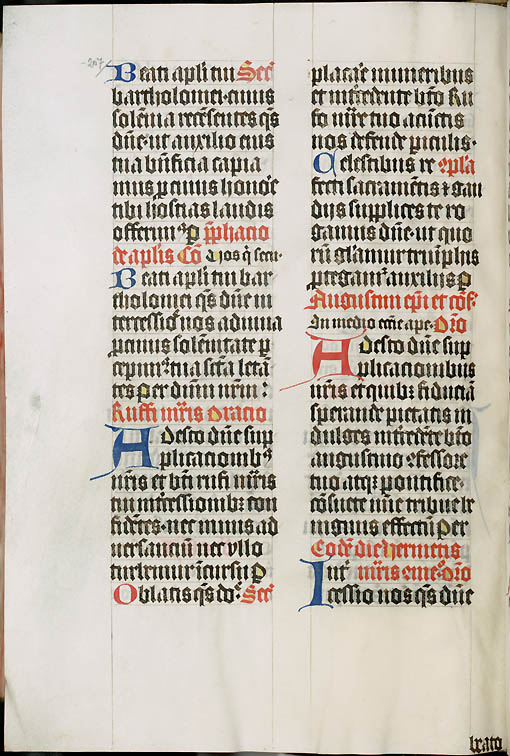 Beati apli tui Secr
bartholomei cuius
solēnia recēsentes qs
dn̄e ut auxilio eius
tua bn̄ficia capia
mus p cuius honore
tibi hostias laudis
offerim⁹ p p̄phacio
de aplis Cō Vos q̄ secu
Beati apli tui bar
tholomei qs dn̄e in
tercessio nos adiuua
p cuius solēnitate p
cepim⁹ tua sc̄ta letā
tes per dn̄m nrm̄
Ruffi mr̄is Oracio
Adesto dn̄e sup
plicacionib⁹
nr̄is et bt̄i rufi mr̄is
tui int̄cessionib⁊ con
fidētes nec minis ad
uersanciū nec vllo
turbemur īcursu p
Oblatis qs do Secr
placare muneribus
et int̄cedente bt̄o Ru
fo mr̄e tuo a cūctis
nos defende piculis
Celestibus re epl'a
fecti sacramētis ⁊ gau
dijs supplices te ro
gamus dn̄e ut quo
rū gl'amur triūphis
ptegam⁹ auxilijs p
Augustini ep̄i et cōf
In medio ecc̄ie ape Orō
Adesto dn̄e sup
plicacionibus
nr̄is et quib⁊ fiduciā
sperande pietatis in
dulges int̄cedēte bt̄o
augustino ↄfessore
tuo atq⁊ pontifice
cōsuete mīe tribue be
nignus effectū per
Eodē die hermetis
Int̄ mr̄is eius orō
cessio nos qs dn̄e